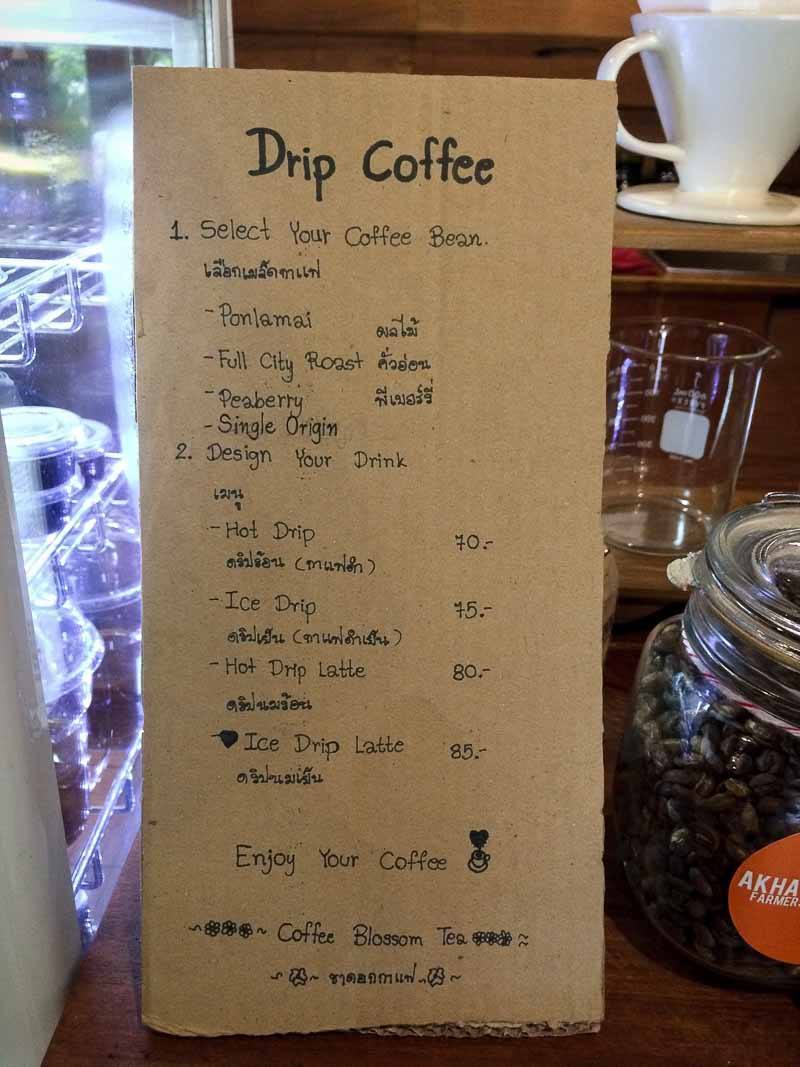 Drip Coffee
1. Select Your Coffee Bean.
เลือกเมล็ดกาแฟ
- Ponlamai ผลไม้
- Full City Roast คั่วอ่อน
- Peaberry พีเบอร์รี่
- Single Origin
2. Design Your Drink
เมนู
- Hot Drip 70.-
ดริปร้อน (กาแฟดำ)
- Ice Drip 75.-
ดริปเย็น (กาแฟดำเย็น)
- Hot Drip Latte 80.-
ดริปนมร้อน
- Ice Drip Latte 85.-
ดริปนมเย็น
Enjoy Your Coffee
~ Coffee Blossom Tea ~
~ ชาดอกกาแฟ ~
AKHA
FARMER